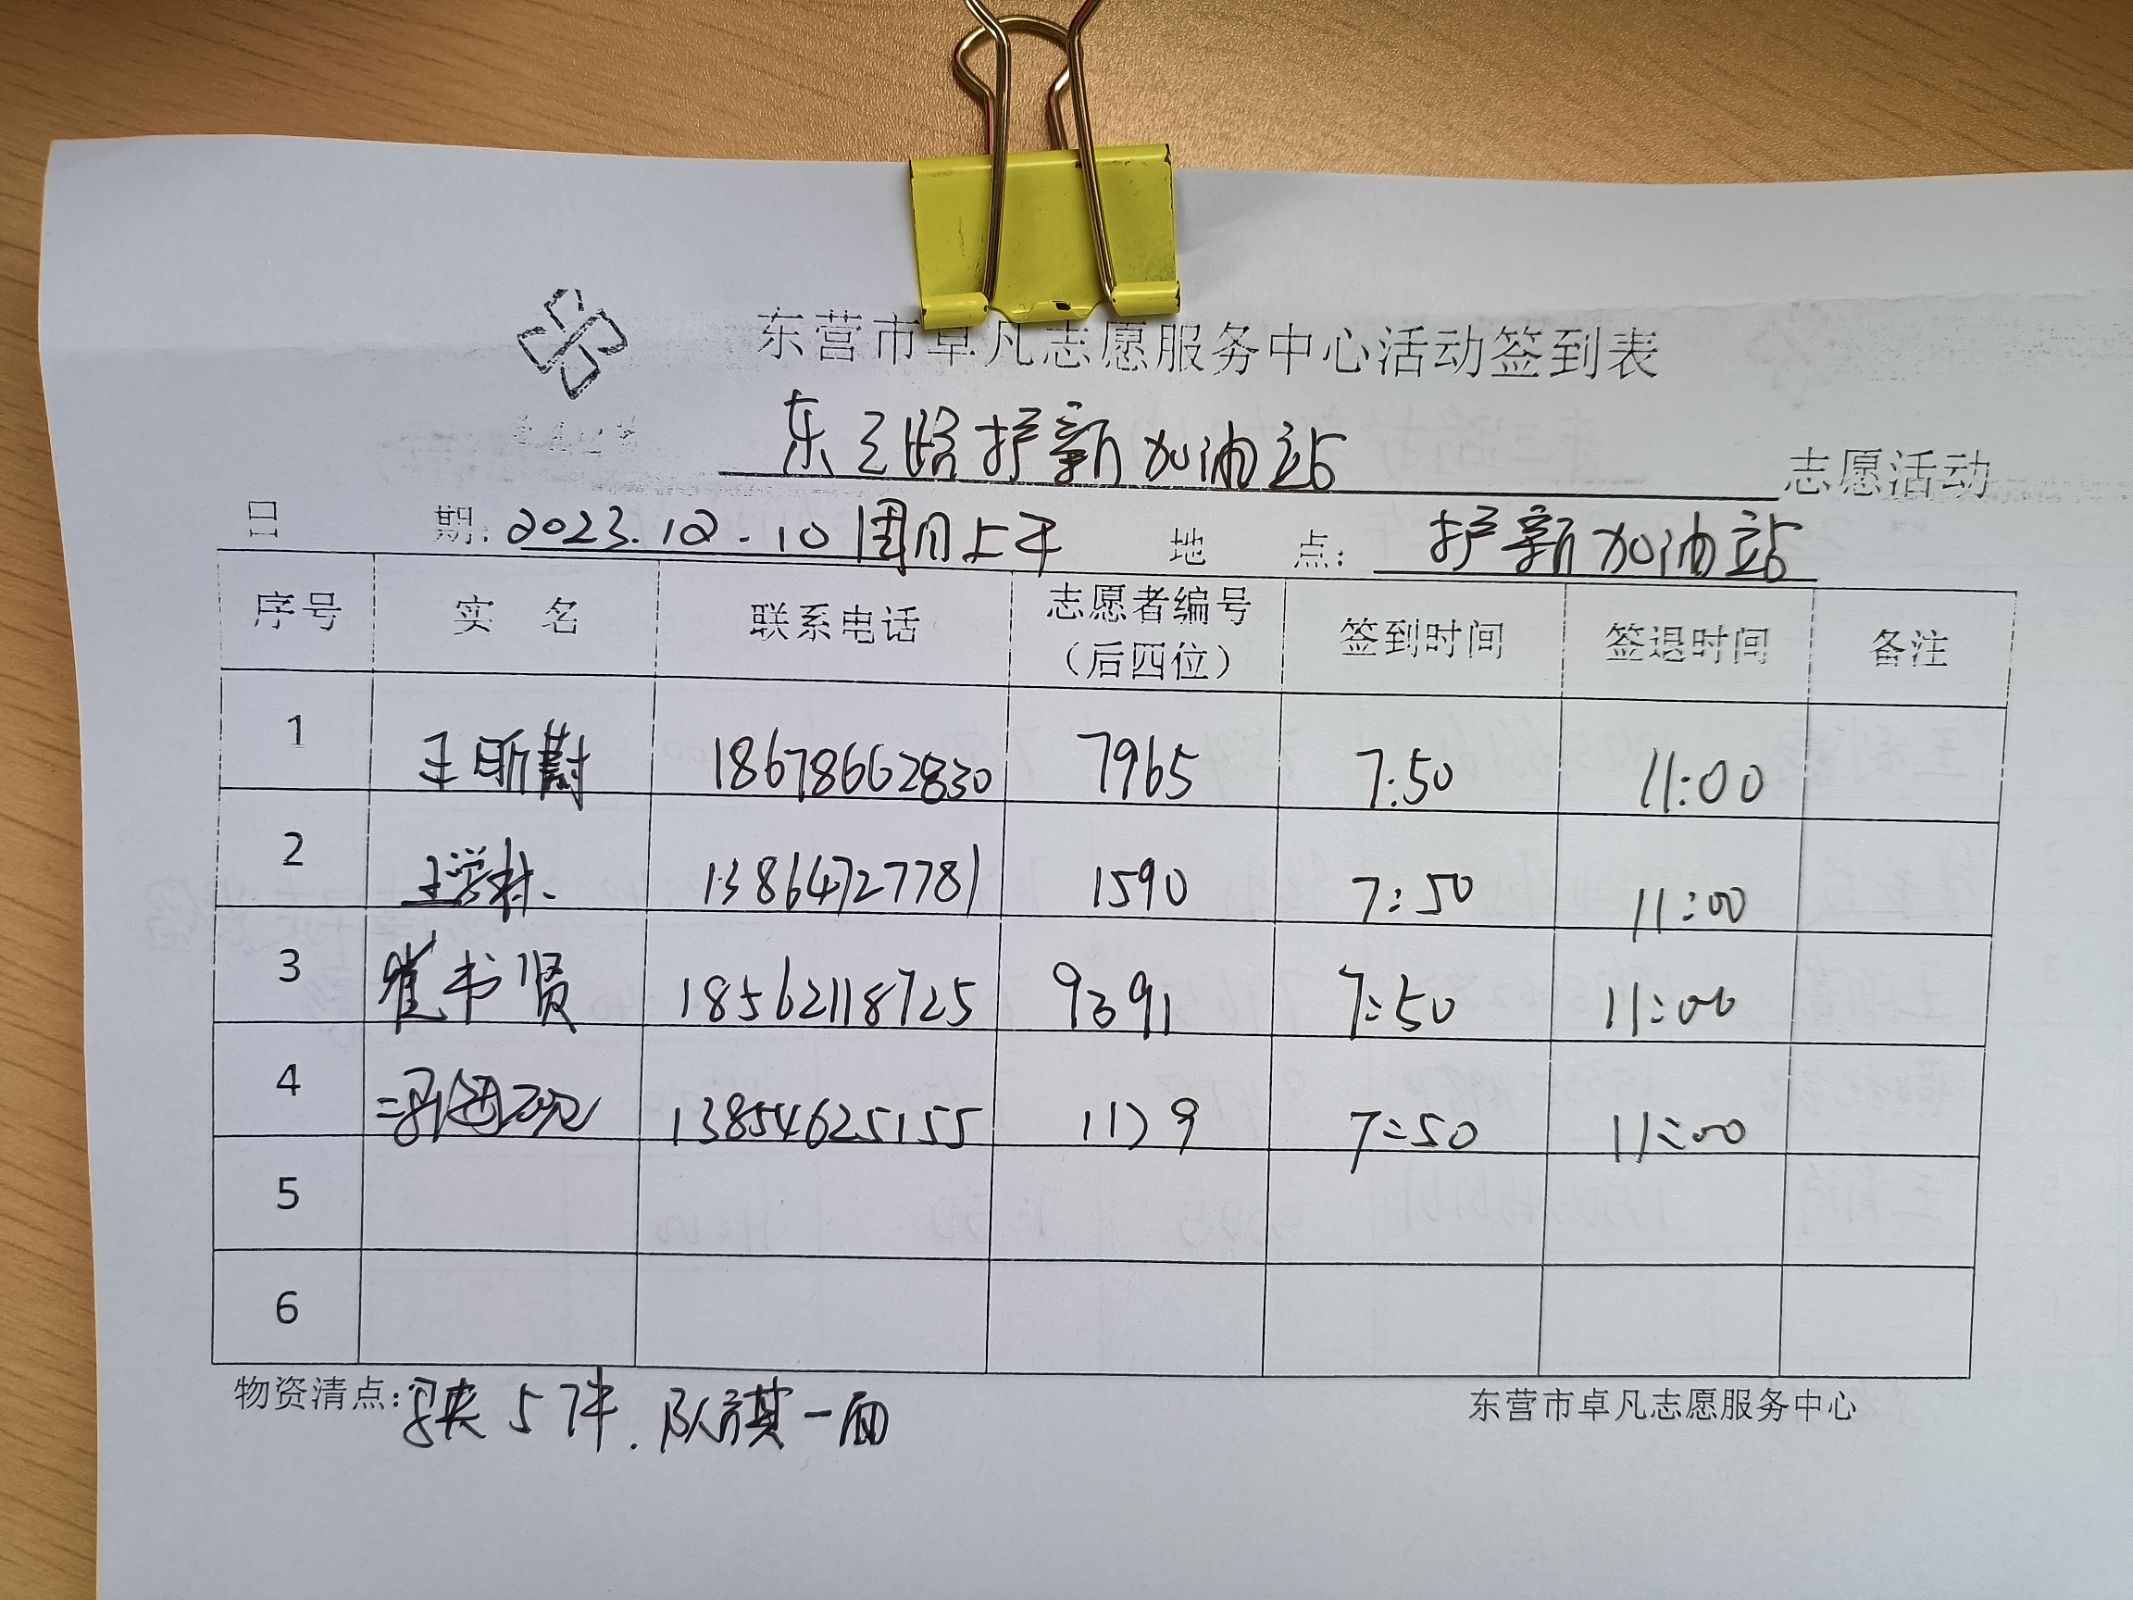 东营市卓凡志愿服务中心活动签到表
东三路护新加油站 志愿活动
日 期: 2023.12.10 周日上午 地 点: 护新加油站
序号 实 名 联系电话 志愿者编号（后四位） 签到时间 签退时间 备注
1 王昕蔚 18678662830 7965 7:50 11:00
2 王学村 13864727781 1590 7:50 11:00
3 崔书贤 18562118725 9391 7:50 11:00
4 13854625155 1129 7:50 11:00
5
6
物资清点: 马夹5件. 队旗一面 东营市卓凡志愿服务中心